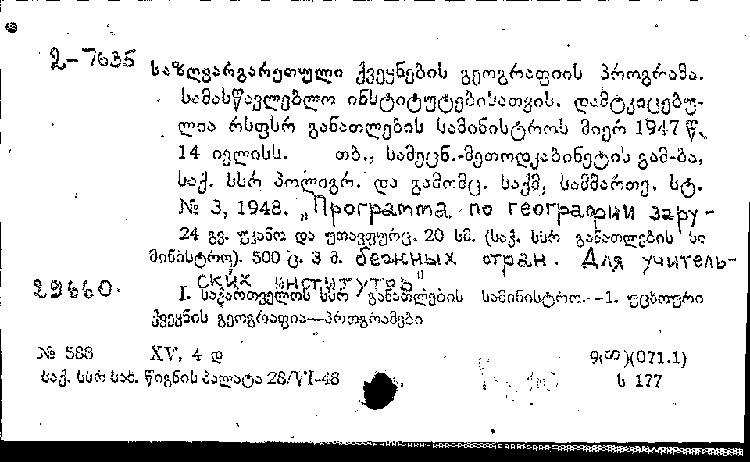 2-7635
საზღვარგარეთული ქვეყნების გეოგრაფიის პროგრამა.
სამასწავლებლო ინსტიტუტებისათვის. დამტკიცებუ-
ლია რსფსრ განათლების სამინისტროს მიერ 1947 წ.
14 ივლისს. თბ., სამეცნ.-მეთოდკაბინეტის გამ-ბა,
საქ. სსრ პოლიგრ. და გამომც. საქმ. სამმართვ. სტ.
№ 3, 1948. „Программа по географии зару-
24 გვ. უყდო და უთავფურც. 20 სმ. (საქ. სსრ განათლების სა
მინისტრო). 500 ც. 3 მ. бежных стран. Для учитель-
ских институтов"
29660.
I. საქართველოს სსრ განათლების სამინისტრო.--1. უცხოური
ქვეყნის გეოგრაფია—პროგრამები
№ 588 XV, 4 დ 9(∞)(071.1)
საქ. სსრ სახ. წიგნის პალატა 28/VI-48 ს 177